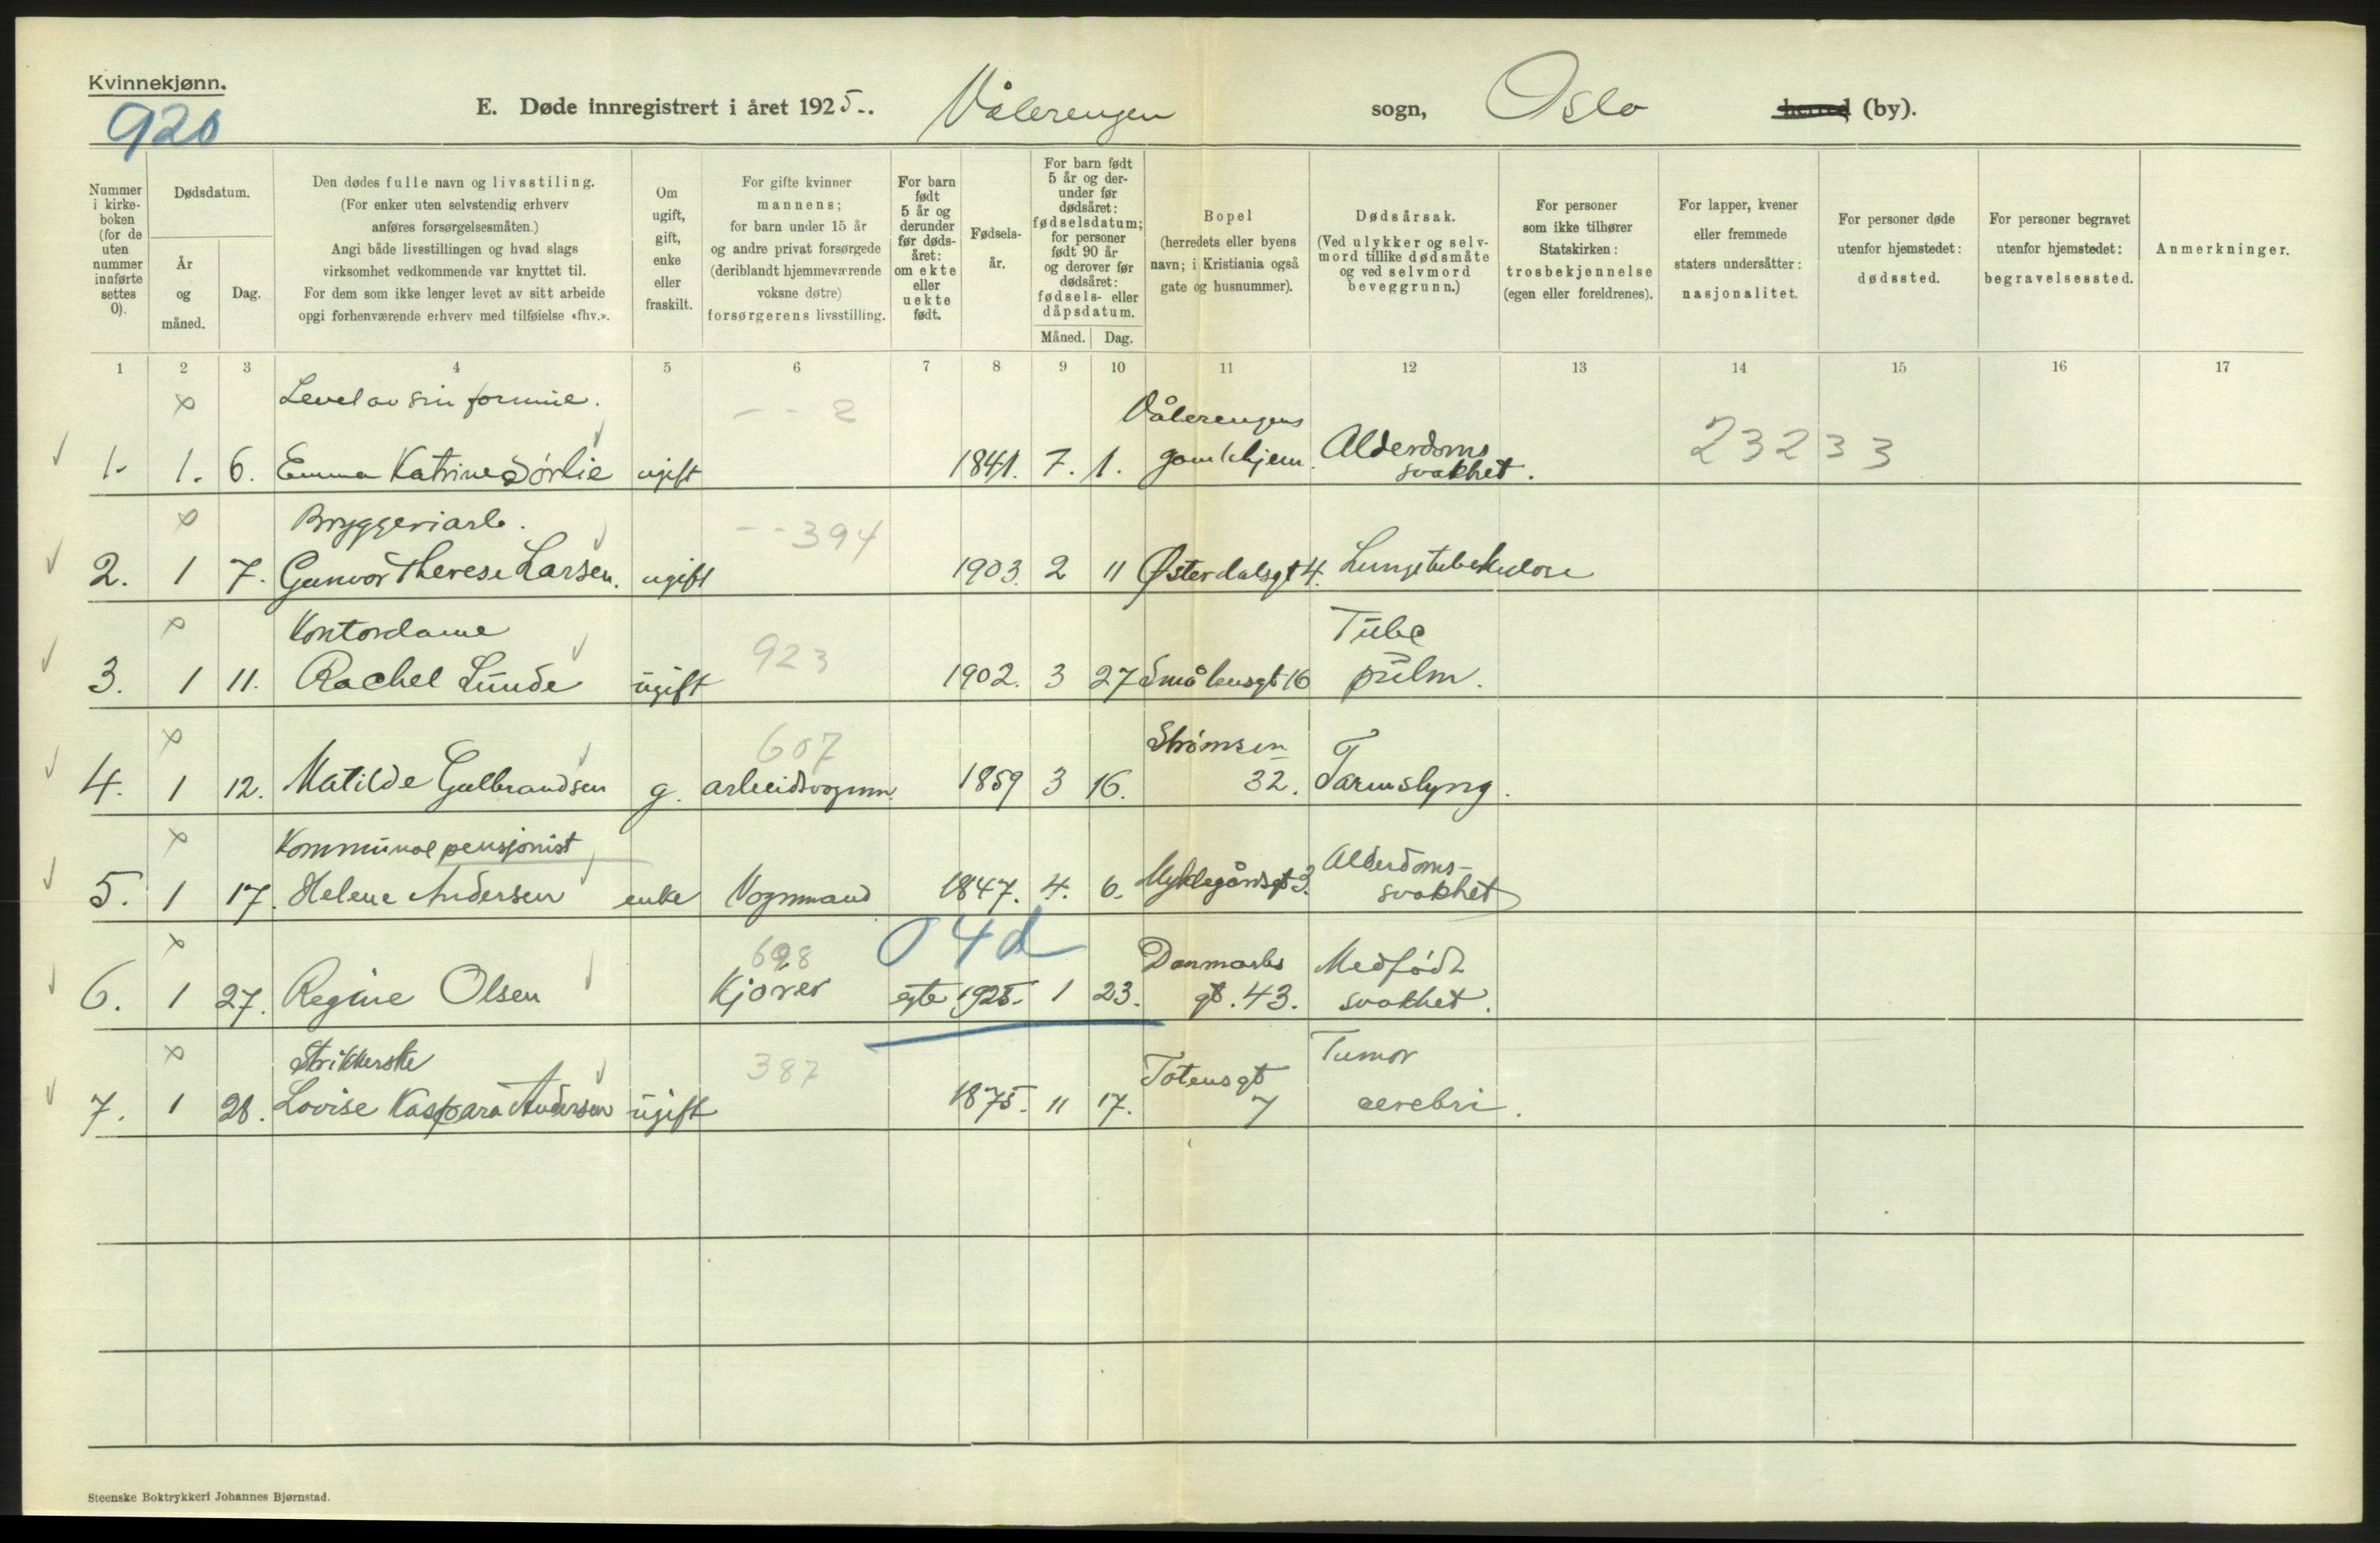 Kvinnekjønn.
920
E. Døde innregistrert i året 1925. Vålerengen sogn, Oslo herred (by).
Nummer i kirke-boken (for de uten nummer innførte settes 0).
Dødsdatum.
År og måned.
Dag.
Den dødes fulle navn og livsstiling.
(For enker uten selvstendig erhverv
anføres forsørgelsesmåten.)
Angi både livsstillingen og hvad slags
virksomhet vedkommende var knyttet til.
For dem som ikke lenger levet av sitt arbeide
opgi forhenværende erhverv med tilføielse «fhv.».
Om ugift, gift, enke eller fraskilt.
For gifte kvinner
mannens;
for barn under 15 år
og andre privat forsørgede
(deriblandt hjemmeværende
voksne døtre)
forsørgerens livsstilling.
For barn født 5 år og derunder før døds-året: om ekte eller uekte født.
Fødsels-år.
For barn født 5 år og der-under før dødsåret: fødselsdatum; for personer født 90 år og derover før dødsåret: fødsels- eller dåpsdatum.
Måned. Dag.
Bopel
(herredets eller byens
navn; i Kristiania også
gate og husnummer).
Dødsårsak.
(Ved ulykker og selv-
mord tillike dødsmåte
og ved selvmord
beveggrunn.)
For personer
som ikke tilhører
Statskirken:
trosbekjennelse
(egen eller foreldrenes).
For lapper, kvener
eller fremmede
staters undersåtter:
nasjonalitet.
For personer døde
utenfor hjemstedet:
dødssted.
For personer begravet
utenfor hjemstedet:
begravelsessted.
Anmerkninger.
1 2 3 4 5 6 7 8 9 10 11 12 13 14 15 16 17
Levet av sin formue. - - 2 Vålerengens
1. 1. 6. Emma Katrine Sørlie ugift 1841. 7. 1. gamlehjem. Alderdoms svakhet. 23233
Bryggeriarb. - - 394
2. 1 7. Gunvor Therese Larsen. ugift 1903. 2 11 Østerdalsgt 4. Lungetuberkulose
Kontordame 923 Tube
3. 1 11. Rachel Lunde ugift 1902. 3 27 Smålensgt 16 pulm.
607 Strømsvn
4. 1 12. Matilde Gulbrandsen g. arbeidsvognm. 1859 3 16. 32. Tarmslyng.
Kommunal pensjonist Alderdoms-
5. 1 17. Helene Andersen enke Vognmand 1847. 4. 6. Myklegårdsgt 3. svakhet
698 04d Danmarks Medfødt
6. 1 27. Regine Olsen Kjører egte 1925. 1 23. gt. 43. svakhet.
Strikkerske 387 Totensgt Tumor
7. 1 28. Lovise Kaspara Andersen ugift 1875. 11 17. 7 cerebri.
Steenske Boktrykkeri Johannes Bjørnstad.